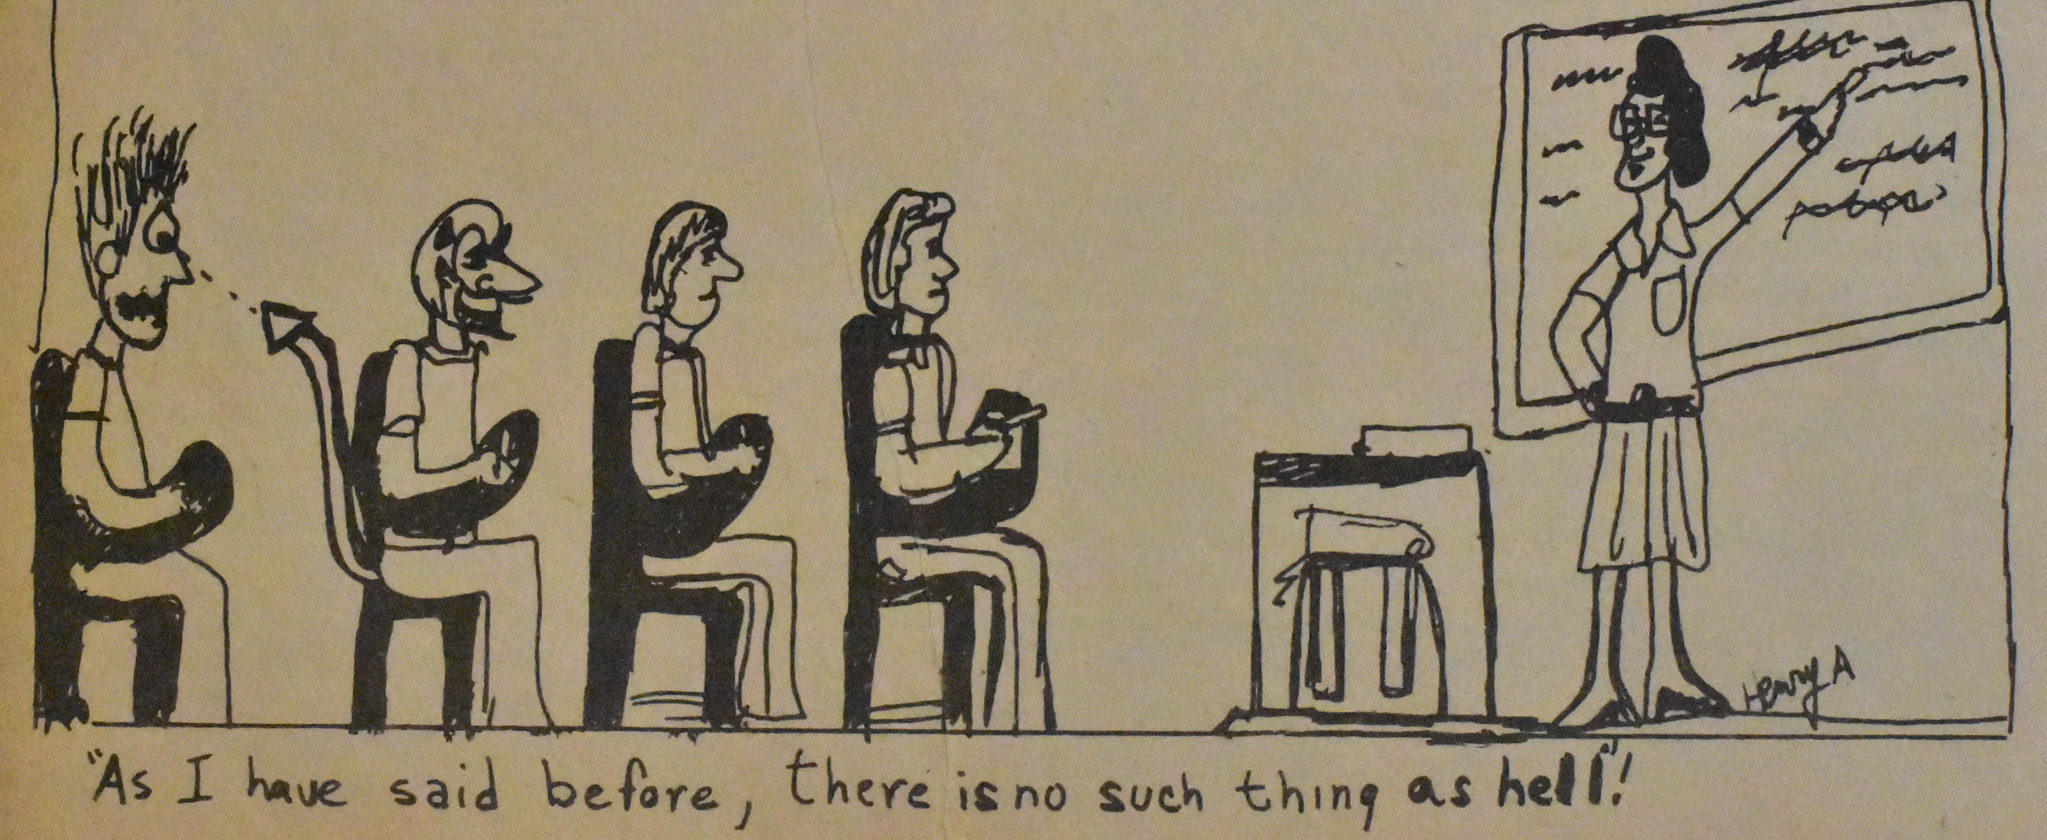 Henry A
"As I have said before, there is no such thing as hell"!